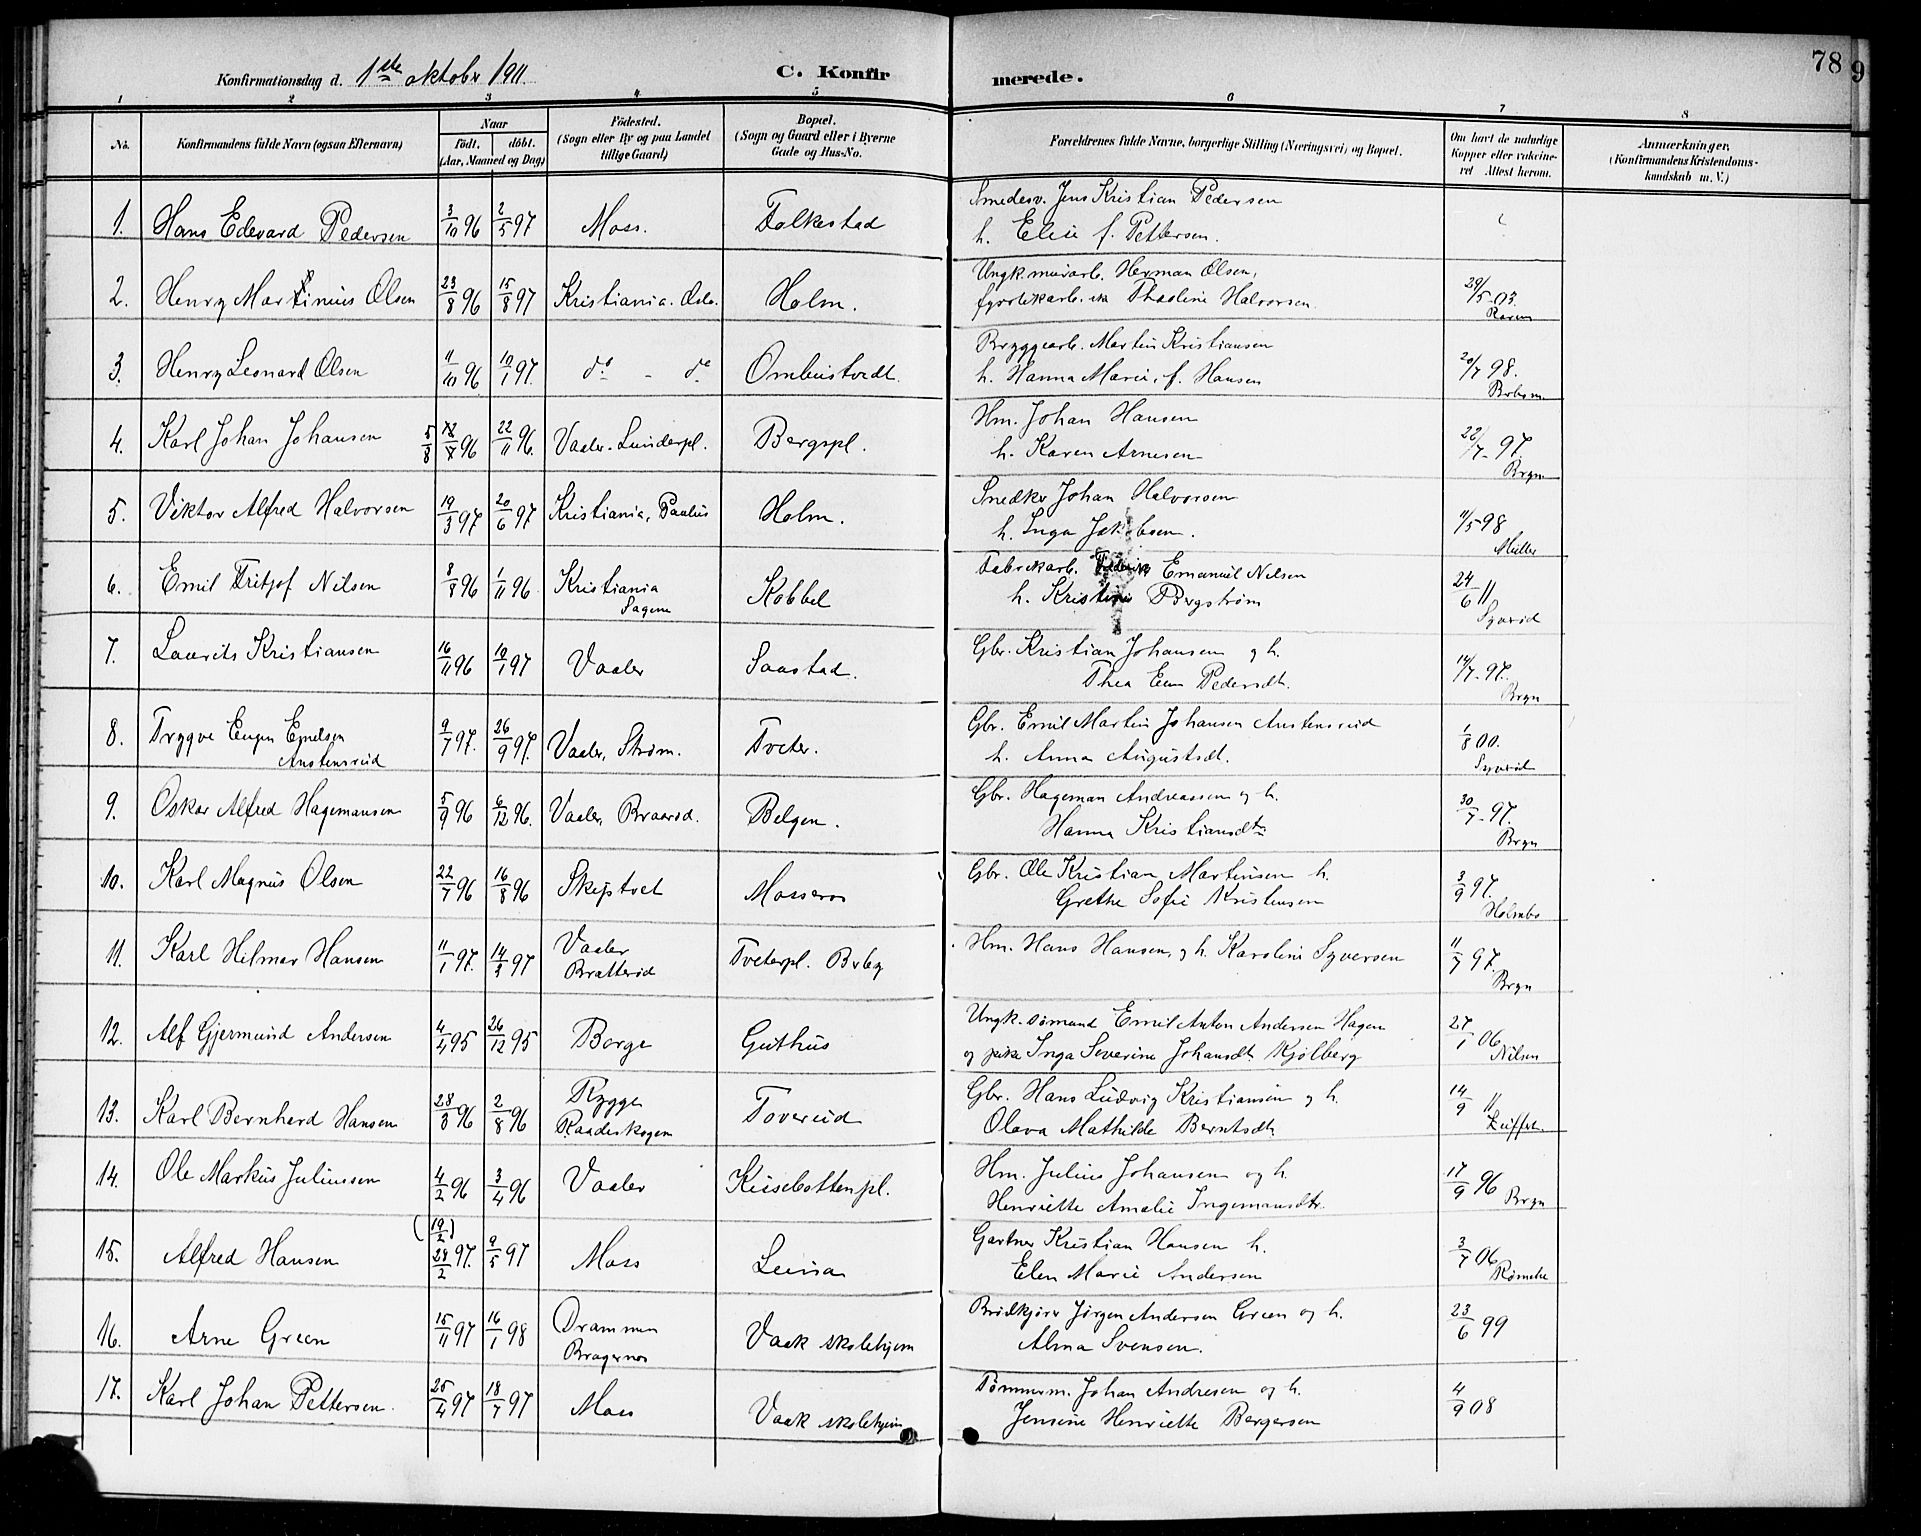 78
9
Konfirmationsdag d. 1ste oktober 1911.
C. Konfirmerede.
1 2 3 4 5 6 7 8
No.
Konfirmandens fulde Navn (ogsaa Efternavn)
Naar
födt. döbt.
(Aar, Maaned og Dag)
Födested.
(Sogn eller By og paa Landet
tillige Gaard)
Bopæl.
(Sogn og Gaard eller i Byerne
Gade og Hus-No.
Forældrenes fulde Navne, borgerlige Stilling (Næringsvei) og Bopæl.
Om havt de naturlige
Kopper eller vakcine-
ret Attest herom.
Anmærkninger,
(Konfirmandens Kristendoms-
kundskab m. V.)
1. Hans Edevard Pedersen 3/10 96 2/5 97 Moss. Folkestad
Smedesv. Jens Kristian Pedersen
h. Elise f. Pettersen.
2. Henry Martinius Olsen 23/8 96 15/8 97 Kristiania. Oslo. Holm.
Ungk. murarb. Herman Olsen,
Halvorsen 29/5-03.
3. Henry Leonard Olsen 11/10 96 10/1 97. do - do Ombustvedt.
Bryggearb. Martin Kristiansen
h. Hanna Marie, f. Hansen 20/7 98.
4. Karl Johan Johansen 5/8 96 22/11 96. Vaaler. Lunderpl. Bergspl.
Hm. Johan Hansen
h. Karen Arnesen 22/7-97. Bryn
5. Viktor Alfred Halvorsen 19/3 97 20/6 97 Kristiania, Paulus Holm.
Snedker Johan Halvorsen
h. Inga Jakobsen. 11/5 98 Müller
6. Emil Fritjof Nilsen 8/8 96 1/11 96 Kristiania Sagene Kobbel
Fabrikarb. Frederik Emanuel Nilsen
h. Kristine Bergstrøm 24/6 11
7. Laurits Kristiansen 16/11 96 10/1 97 Vaaler Saastad.
Gbr. Kristian Johansen og h.
Thea Em Pedersdt. 14/7-97. Bryn
8. Trygve Eugen Emilsen
Austensrud 9/7 97. 26/9 97. Vaaler, Strøm. Tveter.
Gbr. Emil Martin Johansen Austensrud
h. Anna Augustsdt. 1/8 00.
9. Oskar Alfred Hagemansen 5/9 96 6/12 96. Vaaler, Braarod. Belgen.
Gbr. Hageman Andreassen og h.
Hanna Kristiansdtr 30/7-97. Bryn
10. Karl Magnus Olsen 22/7 96 16/8 96 Skiptvet Mosseros
Gbr. Ole Kristian Martinsen h.
Grethe Sofie Kristensen 3/9 97. Holmbo
11. Karl Hilmar Hansen 11/1 97. 14/3 97 Vaaler
Bratterød Tveterpl. Brbg
Hm. Hans Hansen, og h. Karoline Syversen 11/7 97. Bryn
12. Alf Gjermund Andersen 4/4 95 26/12 95 Borge Guthus
Ungk. sømand Emil Anton Andersen Hagen
og pike Inga Severine Johansdt. Kjølberg 27/1 06 Nilsen
13. Karl Bernherd Hansen 28/3 96 2/8 96 Rygge
Raadeskogen Toverud
Gbr. Hans Ludvig Kristiansen og h.
Olava Mathilde Berntsdt. 14/9 11
14. Ole Markus Juliussen 4/2 96 3/4 96 Vaaler Kusebottenpl.
Hm. Julius Johansen og h.
Henriette Amalie Ingemansdtr. 17/9 96 Bryn
15. Alfred Hansen (19/2) 24/2 97. 9/5 97 Moss Lunna
Gartner Kristian Hansen h.
Elen Marie Andersen 3/7 06
16. Arne Green 15/11 97 16/1 98 Drammen
Bragernes Vaak skolehjem
Brødkjører Jørgen Andersen Green og h.
Alma Svensen. 23/6 99
17. Karl Johan Pettersen. 25/4 97 18/7 97 Moss Vaak skolehjem
Tømmerm. Johan Andresen og h.
Jensine Henriette Bergersen 4/9 08